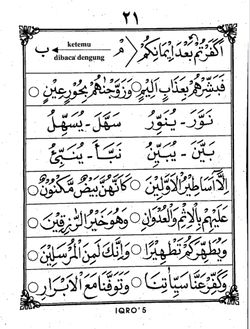 ٢١
أَكَفَرْتُمْ بَعْدَ إِيْمَانِكُمْ مْ ketemu ب
dibaca dengung
فَبَشِّرْهُمْ بِعَذَابٍ اَلِيْمٍ ○ وَزَوَّجْنٰهُمْ بِحُوْرٍ عِيْنٍ ○
نَوَّرَ - يُنَوِّرُ سَهَّلَ - يُسَهِّلُ
بَيَّنَ - يُبَيِّنُ نَبَّأَ - يُنَبِّئُ
اِلَّا اَسَاطِيْرُ الْاَوَّلِيْنَ ○ كَاَنَّهُنَّ بَيْضٌ مَكْنُوْنٌ ○
عَلَيْهِمْ بِالْاِثْمِ وَالْعُدْوَانِ ○ وَهُوَ خَيْرُ الرّٰزِقِيْنَ ○
وَيُطَهِّرَكُمْ تَطْهِيْرًا ○ وَاِنَّكَ لَمِنَ الْمُرْسَلِيْنَ ○
وَكَفِّرْ عَنَّا سَيِّاٰتِنَا ○ وَتَوَفَّنَا مَعَ الْاَبْرَارِ ○
IQRO'5